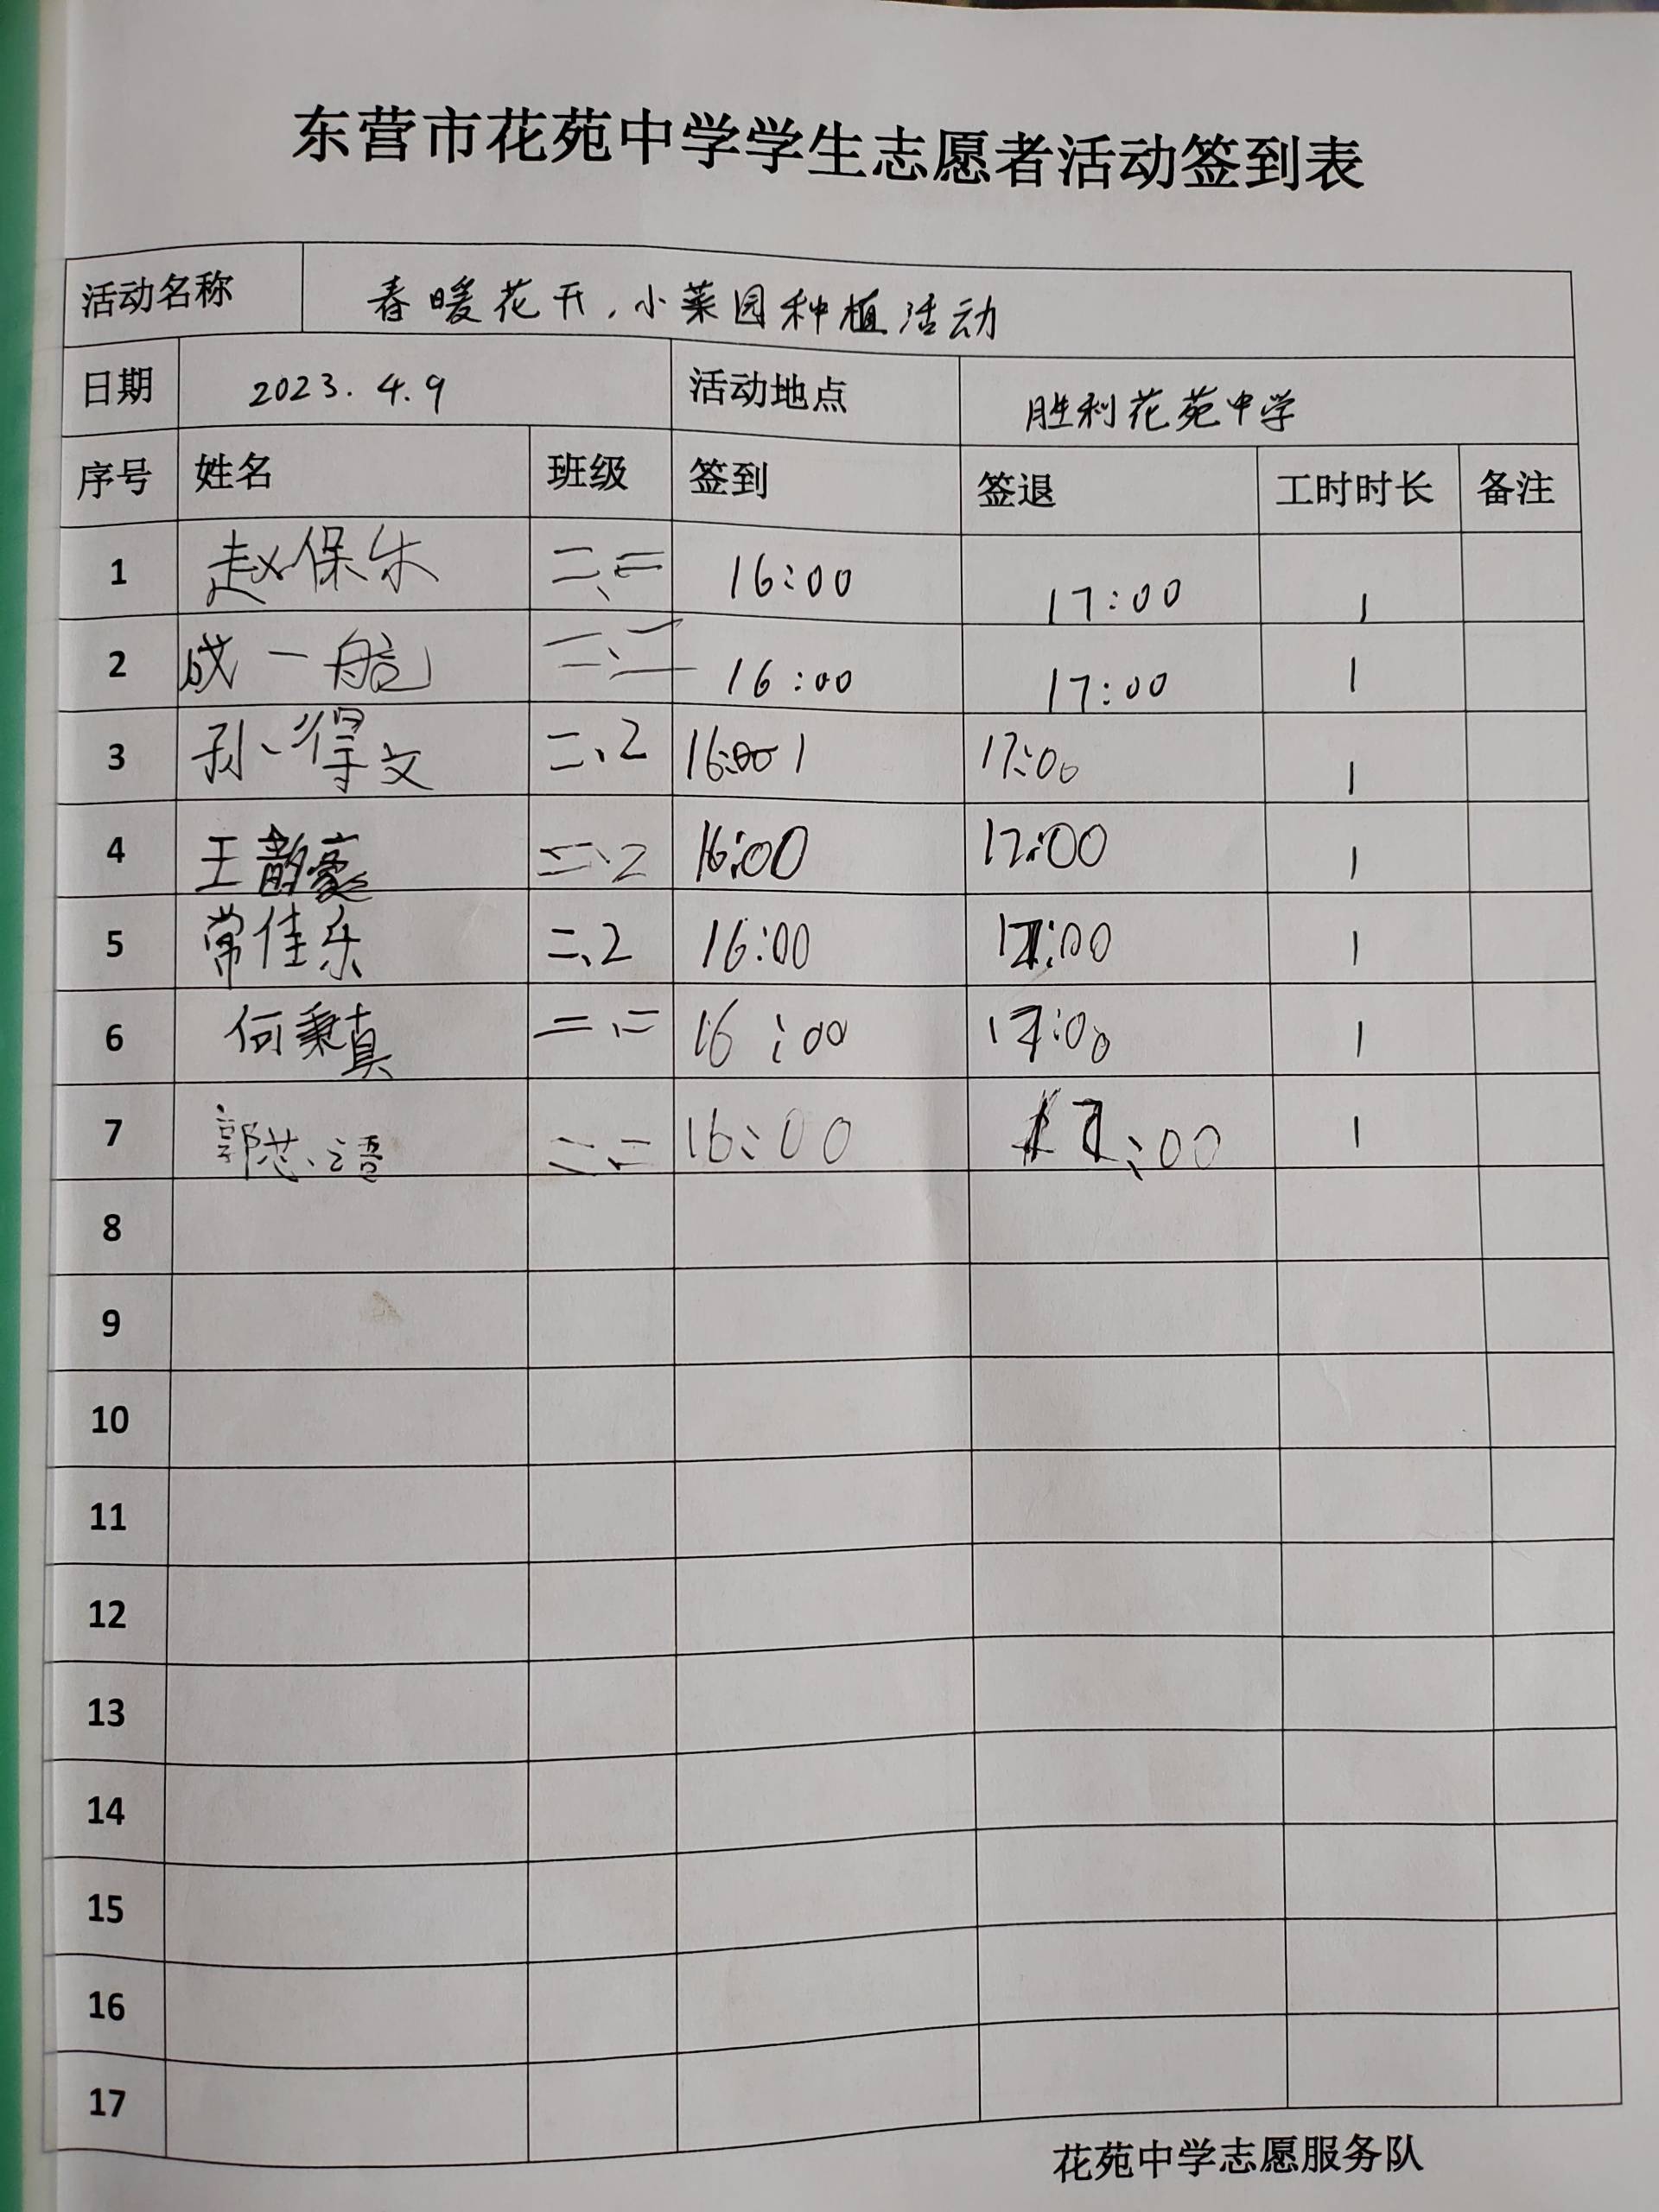 东营市花苑中学学生志愿者活动签到表
活动名称 春暖花开,小菜园种植活动
日期 2023.4.9 活动地点 胜利花苑中学
序号 姓名 班级 签到 签退 工时时长 备注
1 赵保乐 二、二 16:00 17:00 1
2 成一航 二、二 16:00 17:00 1
3 孙得文 二、2 16:00 1 17:00 1
4 王韵豪 二、2 16:00 17:00 1
5 常佳乐 二、2 16:00 17:00 1
6 何秉真 二、二 16:00 17:00 1
7 郭芯语 二、二 16:00 17:00 1
8
9
10
11
12
13
14
15
16
17
花苑中学志愿服务队